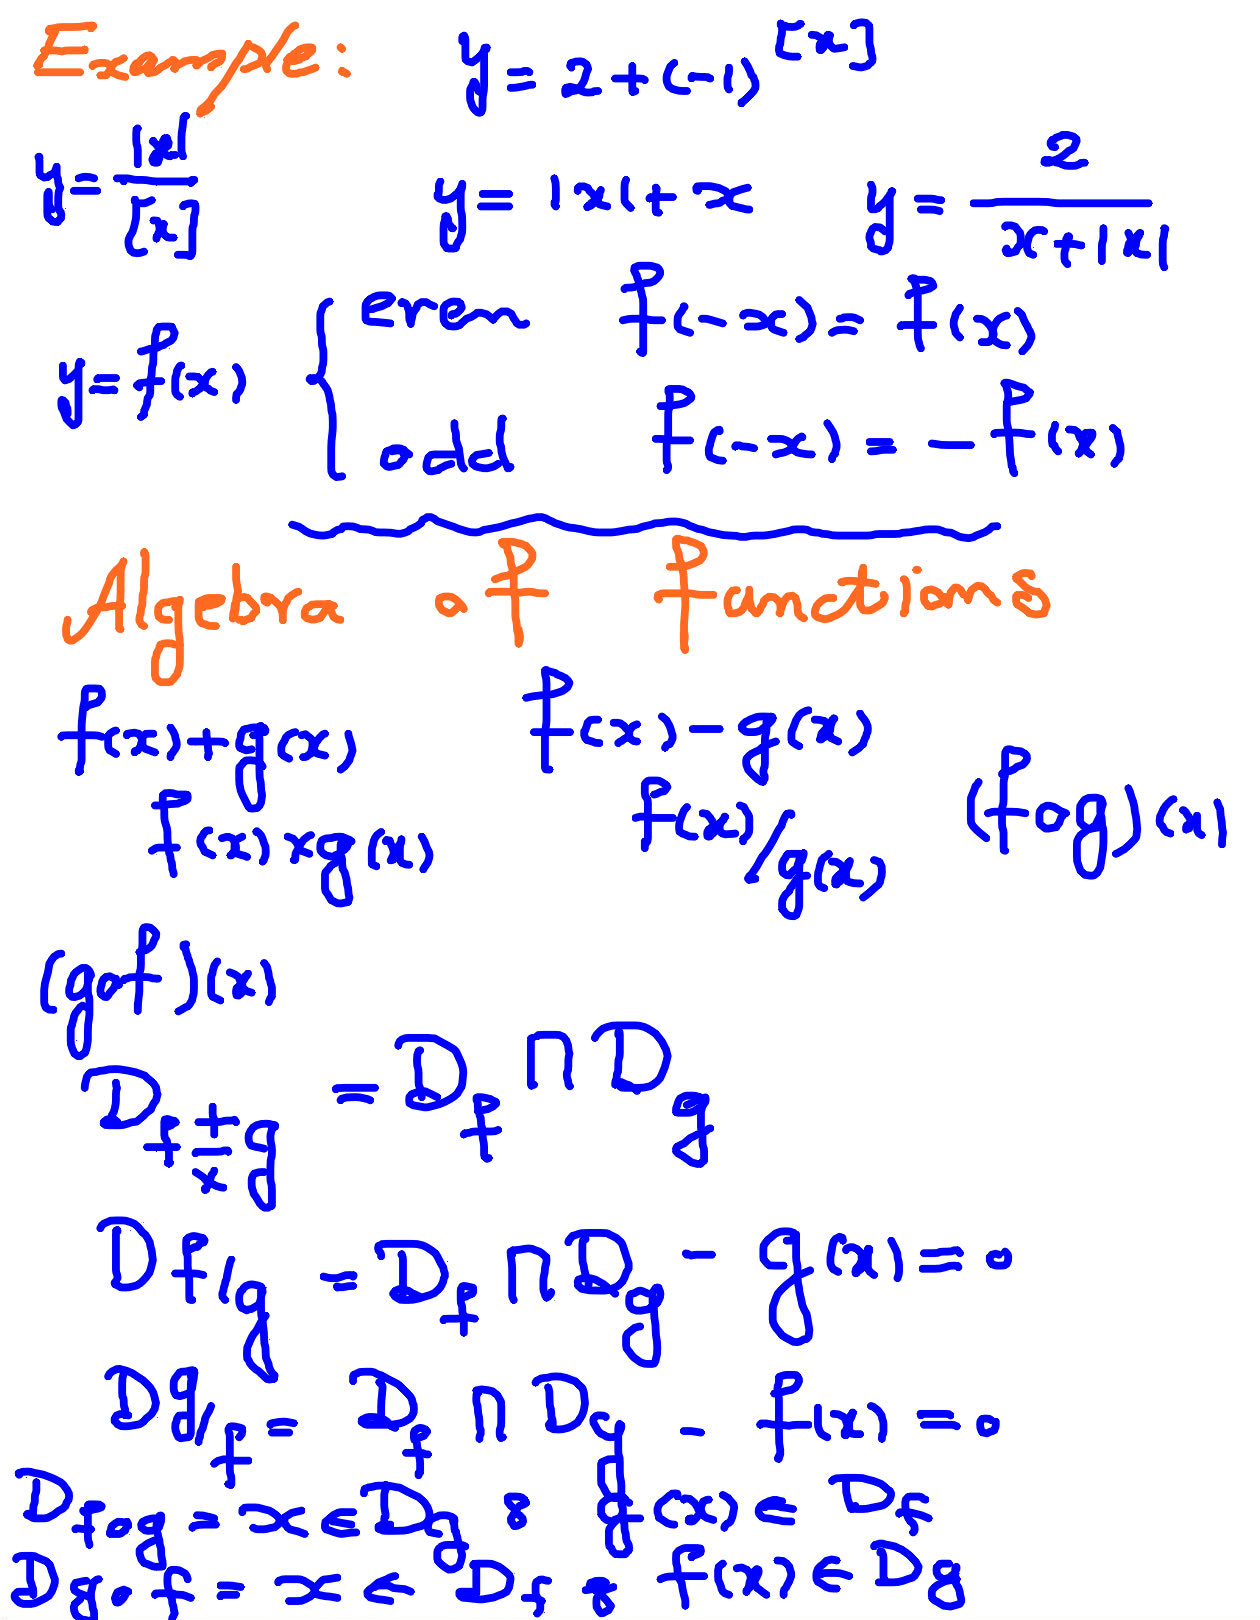 Example: y = 2 + (-1)^[x]
y = |x| / [x] y = |x| + x y = 2 / (x + |x|)
y = f(x) { even f(-x) = f(x)
odd f(-x) = - f(x)
Algebra of functions
f(x) + g(x) f(x) - g(x)
f(x) × g(x) f(x)/g(x) (fog)(x)
(gof)(x)
D f + - × g = D f ∩ D g
D f/g = D f ∩ D g - g(x) = 0
D g/f = D f ∩ D g - f(x) = 0
D fog = x ∈ D g & g(x) ∈ D f
D gof = x ∈ D f & f(x) ∈ D g